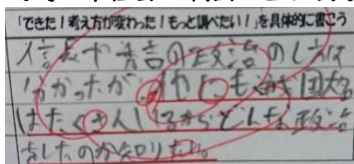 「できた！考え方が変わった！もっと調べたい！」を具体的に書こう
信長や秀吉の政治のしかは
分かったが、他にも戦国大名
はたくさんいるからどんな政治
をしたのか知りたい。